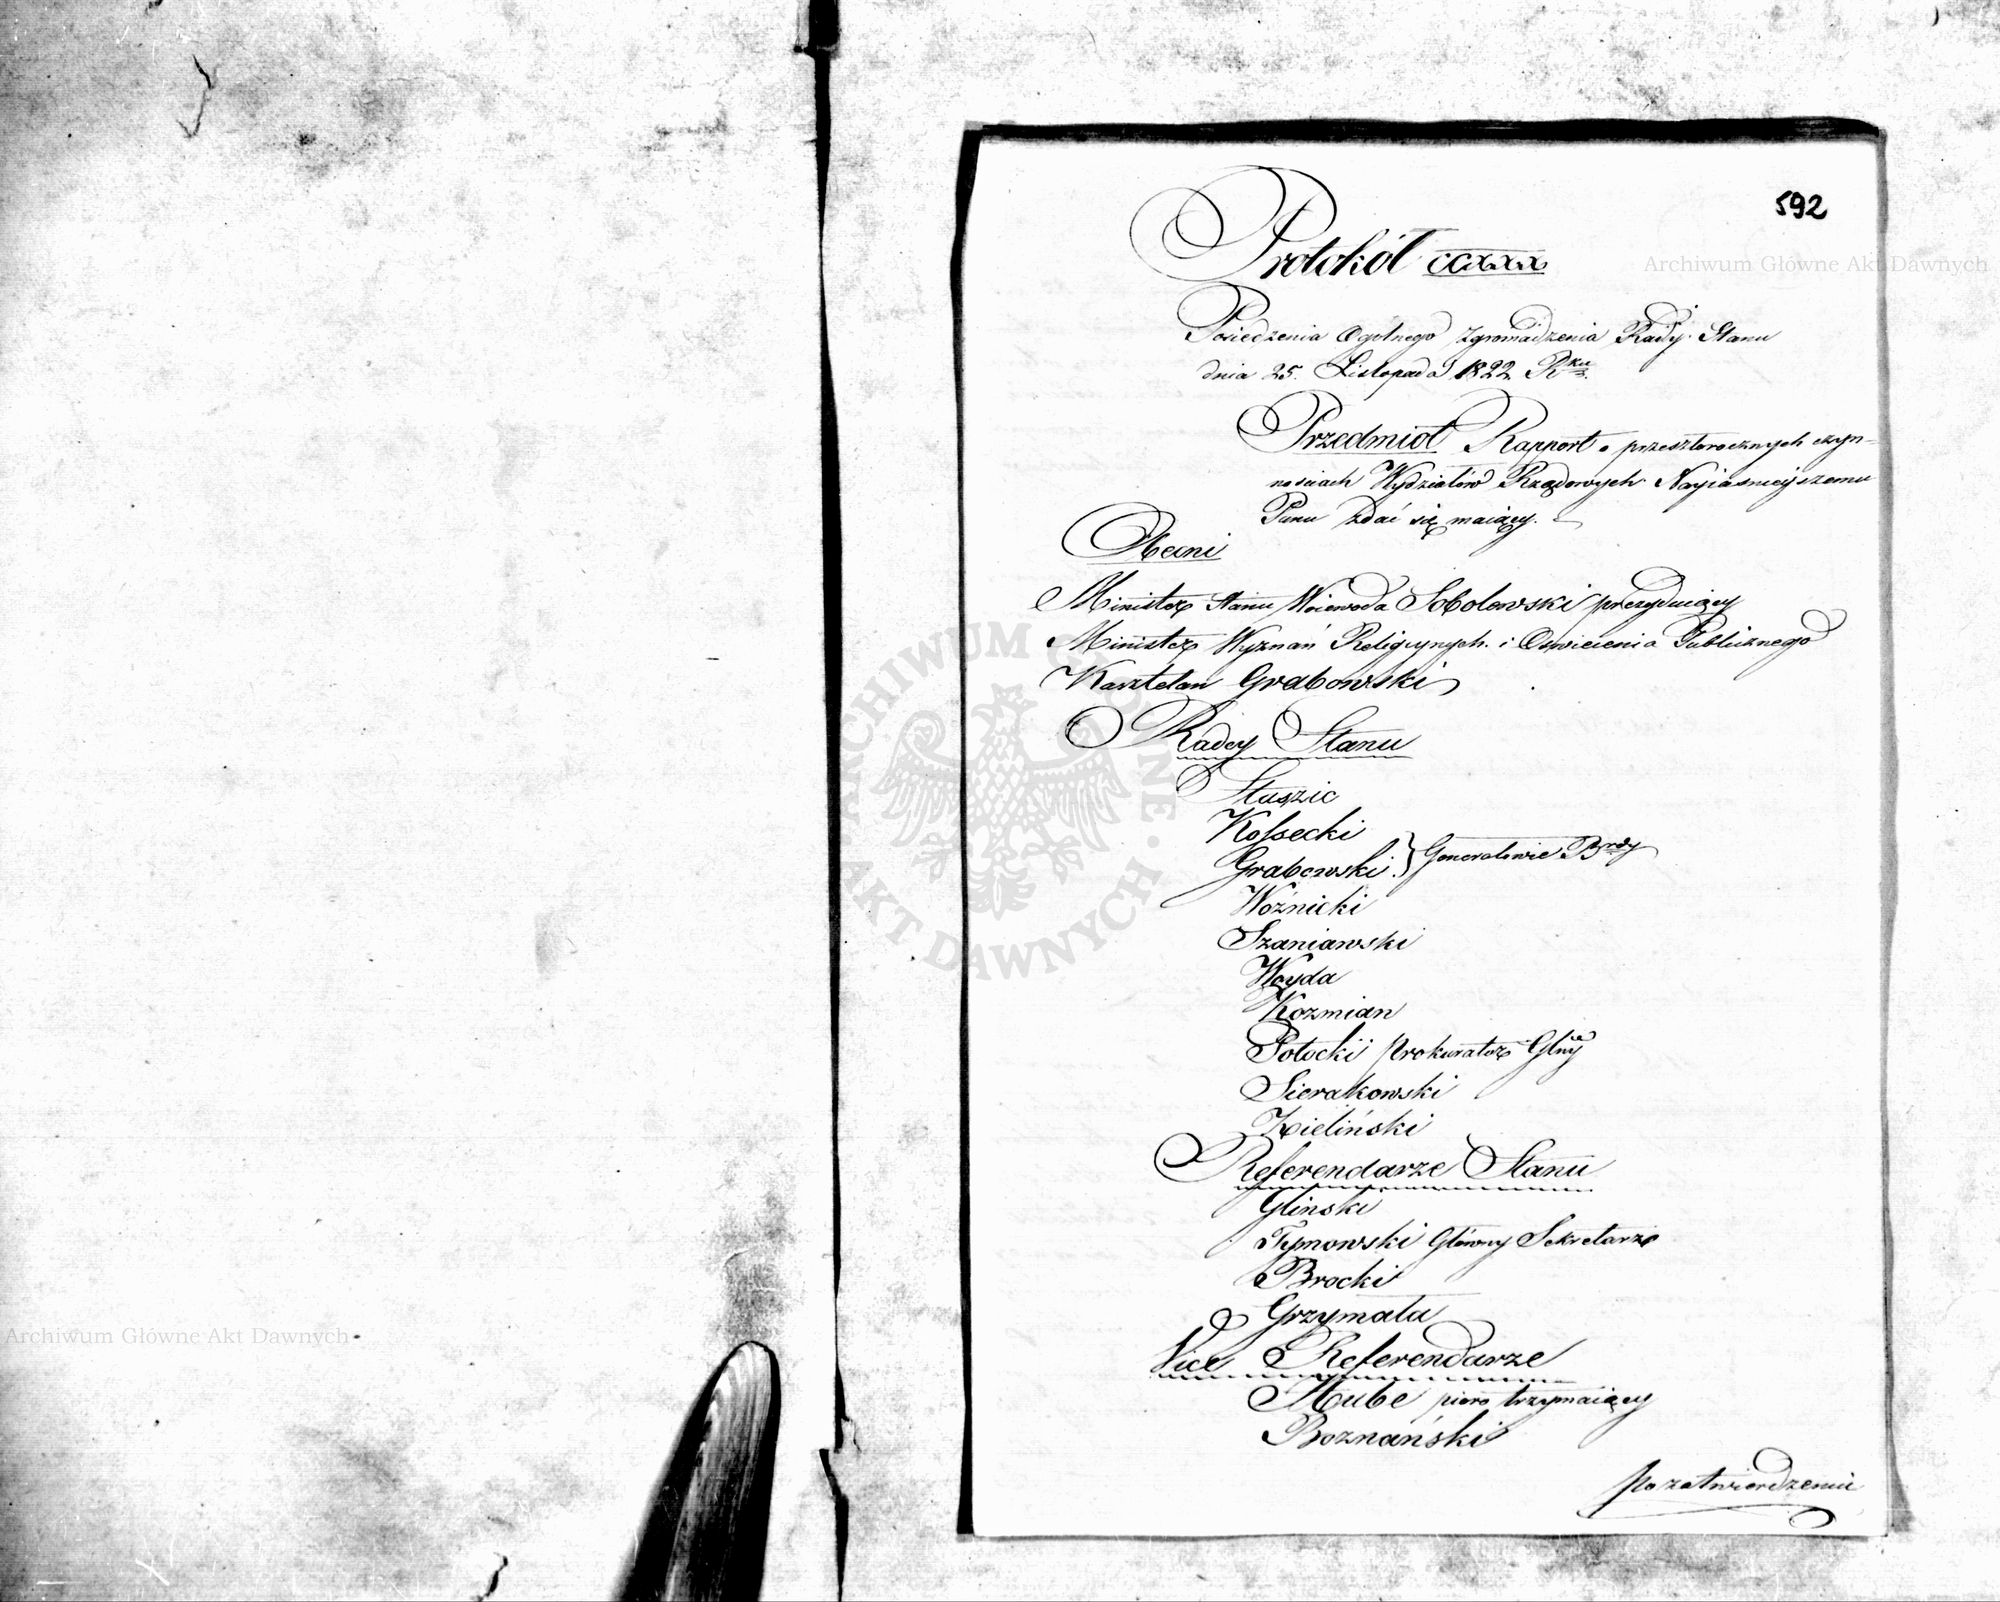 592
Protokół CCXXX
Posiedzenia Ogolnego Zgromadzenia Rady Stanu
dnia 25. Listopada 1822 Rku
Przedmiot Rapport o przeszłorocznych czyn-
nościach Wydziałów Rządowych Nayiaśnieyszemu
Panu zdać się maiący.
Obecni
Minister Stanu Woiewoda Sobolewski prezyduiący
Minister Wyznań Religiynych i Oswiecenia Publicznego
Kasztelan Grabowski
Radcy Stanu
Staszic
Kossecki
Grabowski } Generałowie Brdy
Woźnicki
Szaniawski
Woyda
Kozmian
Potocki Prokurator Glny
Sierakowski
Zieliński
Referendarze Stanu
Gliński
Tymowski Główny Sekretarz
Brocki
Grzymała
Vice Referendarze
Hube pioro trzymaiący
Boznański
Po zatwierdzeniu
Archiwum Główne Akt Dawnych
Archiwum Główne Akt Dawnych
ARCHIWUM GŁÓWNE AKT DAWNYCH